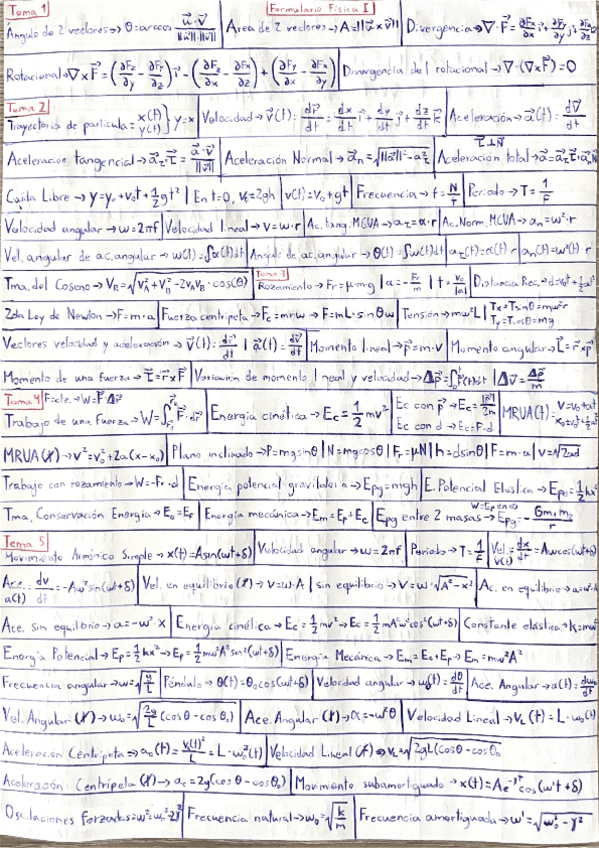 Tema 1 Formulario Física I
Ángulo de 2 vectores → θ=arcos u⃗·v⃗/‖u⃗‖·‖v⃗‖ | Área de 2 vectores → A=‖u⃗×v⃗‖ | Divergencia → ∇·F⃗ = ∂Fx/∂x i⃗ + ∂Fy/∂y j⃗ + ∂Fz/∂z
Rotacional → ∇×F⃗ = (∂Fz/∂y - ∂Fy/∂z) i⃗ - (∂Fz/∂x - ∂Fx/∂z) + (∂Fy/∂x - ∂Fx/∂y) | Divergencia del rotacional → ∇·(∇×F⃗)=0
Tema 2
Trayectoria de partícula = x(t) y(t) } y=x | Velocidad → v⃗(t) = dr⃗/dt = dx/dt i⃗ + dy/dt j⃗ + dz/dt k⃗ | Aceleración → a⃗(t) = dv⃗/dt
Aceleración tangencial → a⃗τ·τ⃗ = a⃗·v⃗/‖v⃗‖ | Aceleración Normal → a⃗n = √‖a⃗‖²-aτ² | Aceleración total → a⃗=a⃗τ
Caída Libre → y=y₀+v₀t+½gt² | En t=0, | v(t)=v₀+gt | Frecuencia → f=N/T | Periodo → T=1/F
Velocidad angular → w=2πf | Velocidad lineal → v=w·r | Ac. tang. MCUA → aτ=α·r | Ac. Norm. MCUA → an=w²·r
Vel. angular de ac. angular → w(t)=∫α(t)dt | Angulo de ac. angular → θ(t)=∫w(t)dt | aτ(t)=α(t)·r | an(t)=w²(t)·r
Tma. del Coseno → VR=√VA²+VB²-2VAVB·cos(θ) | Tema 3 Rozamiento → Fr=μ·mg | a=-Fr/m | t=v₀/|a| | Distancia Rec. → d=v₀t+½at²
2da Ley de Newton → F=m·a | Fuerza centripeta → Fc=mrw → F=mL·sinθw | Tensión → mw²L | Tx=Tsinθ=mw²r Ty=Tcosθ=mg
Vectores velocidad y aceleración → v⃗(t)=dr⃗/dt | a⃗(t)=dv⃗/dt | Momento lineal → p⃗=m·v | Momento angular → L⃗=r⃗×p⃗
Momento de una fuerza → τ⃗=r⃗×F⃗ | Variacion de momento lineal y velocidad → Δp⃗=∫F(t)dt | Δv⃗=Δp⃗/m
Tema 4 F=cte. → W=F⃗·Δr⃗
Trabajo de una Fuerza → W=∫F⃗·dr⃗ | Energía cinética → Ec=½mv² | Ec con p⃗ → Ec=|p⃗|²/2m Ec con d → Ec=F·d | MRUA(t) v=v₀+at x=v₀t+½at²
MRUA(t̸) → v²=v₀²+2a(x-x₀) | Plano inclinado → P=mgsinθ | N=mgcosθ | Fr=μN | h=dsinθ | F=m·a | v=√2ad
Trabajo con rozamiento → W=-Fr·d | Energía potencial gravitatoria → Epg=mgh | E. Potencial Elastica → Epe=½kx²
Tma. Conservación Energia → E₀=Ef | Energía mecánica → Em=Ep+Ec | Epg entre 2 masas → Epg=-Gm₁m₂/r
Tema 5
Movimiento Armónico Simple → x(t)=Asin(wt+δ) | Velocidad angular → w=2πf | Periodo → T=1/f | Vel. v(t)=dx/dt=Awcos(wt+δ)
Ace. a(t)=dv/dt=-Aw²sin(wt+δ) | Vel. en equilibrio(t̸) → v=w·A | sin equilibrio → v=w·√A²-x² | Ac. en equilibrio →
Ace. sin equilibrio → a=-w²·x | Energía cinética → Ec=½mv² → Ec=½mA²w²cos²(wt+δ) | Constante elástica → k=mw²
Energía Potencial → Ep=½kx² → Ep=½mw²A²sin²(wt+δ) | Energía Mecánica → Em=Ec+Ep → Em=mw²A²
Frecuencia angular → w=√g/L | Péndulo → θ(t)=θ₀cos(wt+δ) | Velocidad angular → wθ(t)=dθ/dt | Ace. Angular → α(t)=dwθ/dt
Vel. Angular (t̸) → wθ=√2g/L (cosθ-cosθ₀) | Ace. Angular (t̸) → α=-w²θ | Velocidad Lineal → VL(t)=L·wθ(t)
Aceleración Centripeta → ac(t)=VL(t)²/L=L·wθ²(t) | Velocidad Lineal (t̸) → VL=√2gL(cosθ-cosθ₀
Aceleración Centrípeta (t̸) → ac=2g(cosθ-cosθ₀) | Movimiento subamortiguado → x(t)=Ae^-γt cos(w't+δ)
Oscilaciones forzadas = w²=w₀²-2γ² | Frecuencia natural → w₀=√k/m | Frecuencia amortiguada → w'=√w₀²-γ²